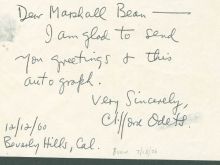 Dear Marshall Bean —
I am glad to send
you greetings & this
autograph.
Very Sincerely,
Clifford Odets.
12/12/60
Beverly Hills, Cal.